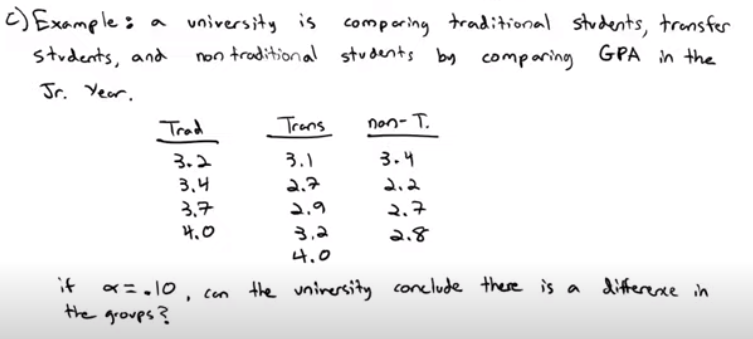 c) Example: a university is comparing traditional students, transfer
students, and non traditional students by comparing GPA in the
Jr. Year.
Trad Trans non-T.
3.2 3.1 3.4
3.4 2.7 2.2
3.7 2.9 2.7
4.0 3.2 2.8
4.0
if α=.10, can the university conclude there is a difference in
the groups?